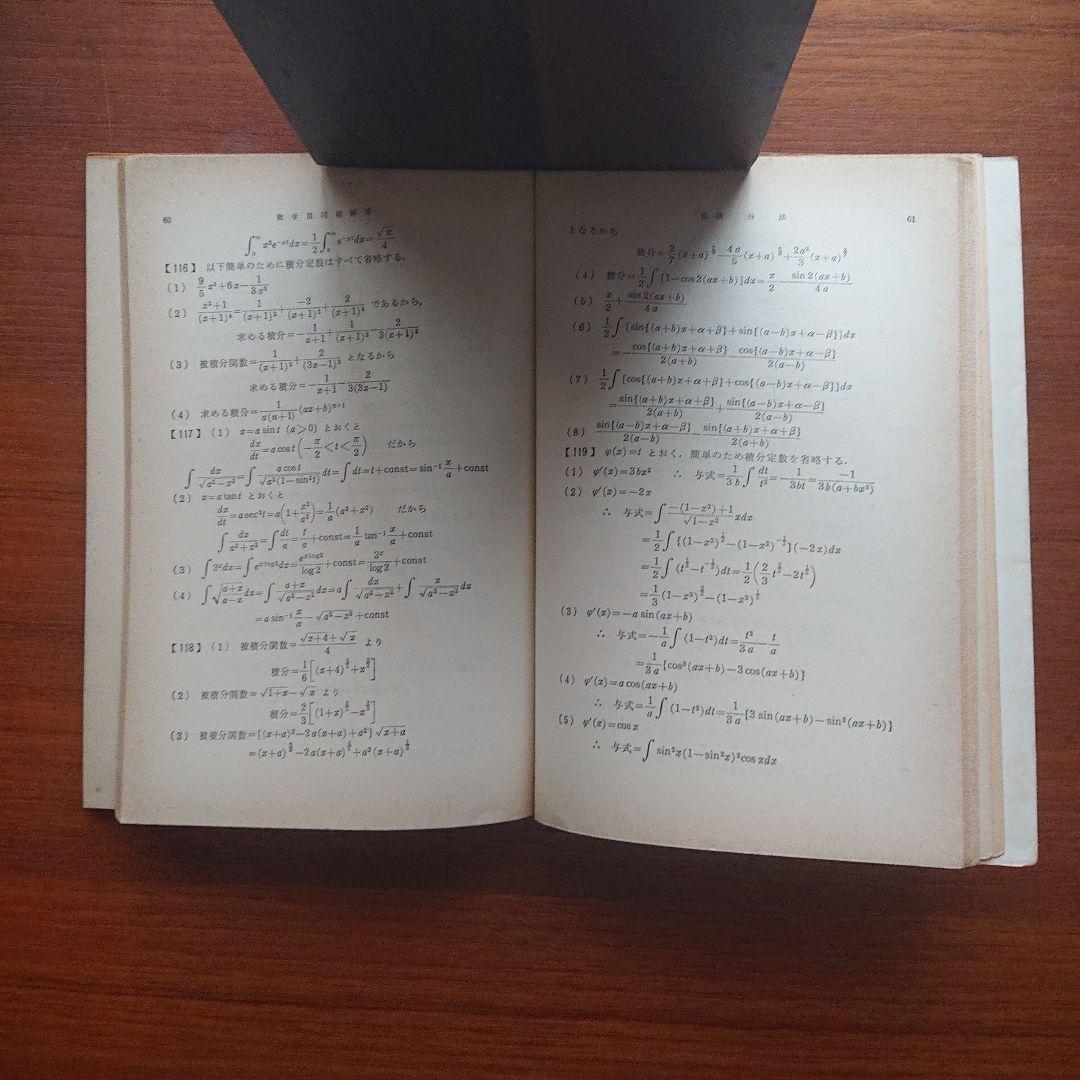 60 数学題問題解答
∫₀^∞ x²e^{-x²}dx=1/2∫₀^∞ e^{-x²}dx=√π/4
【116】 以下簡単のために積分定数はすべて省略する.
(1) 9/5 x⁵+6x-1/(3x³)
(2) (x²+1)/(x+1)⁴=1/(x+1)²+(-2)/(x+1)³+2/(x+1)⁴ であるから,
求める積分=-1/(x+1)+1/(x+1)²-2/(3(x+1)³)
(3) 被積分関数=1/(x+1)²+2/(3x-1)² となるから
求める積分=-1/(x+1)-2/(3(3x-1))
(4) 求める積分=1/(a(n+1)) (ax+b)^{n+1}
【117】 (1) x=a sin t (a>0) とおくと
dx/dt=a cos t (-π/2<t<π/2) だから
∫dx/√(a²-x²)=∫a cos t/√(a²(1-sin²t)) dt=∫dt=t+const=sin⁻¹ x/a+const
(2) x=a tan t とおくと
dx/dt=a sec²t=a(1+x²/a²)=1/a(a²+x²) だから
∫dx/(a²+x²)=∫dt/a=t/a+const=1/a tan⁻¹ x/a+const
(3) ∫2ˣdx=∫e^{x log2}dx=e^{x log2}/log2+const=2ˣ/log2+const
(4) ∫√((a+x)/(a-x))dx=∫(a+x)/√(a²-x²)dx=a∫dx/√(a²-x²)+∫x/√(a²-x²)dx
=a sin⁻¹ x/a-√(a²-x²)+const
【118】 (1) 被積分関数=(√(x+4)+√x)/4 より
積分=1/6[(x+4)^{3/2}+x^{3/2}]
(2) 被積分関数=√(1+x)-√x より
積分=2/3[(1+x)^{3/2}-x^{3/2}]
(3) 被積分関数=[(x+a)²-2a(x+a)+a²]√(x+a)
=(x+a)^{5/2}-2a(x+a)^{3/2}+a²(x+a)^{1/2}
積分法 61
となるから
積分=2/7(x+a)^{7/2}-4a/5(x+a)^{5/2}+2a²/3(x+a)^{3/2}
(4) 積分=1/2∫[1-cos2(ax+b)]dx=x/2-sin2(ax+b)/4a
(5) x/2+sin2(ax+b)/4a
(6) 1/2∫[sin{(a+b)x+α+β}+sin{(a-b)x+α-β}]dx
=-cos{(a+b)x+α+β}/2(a+b)-cos{(a-b)x+α-β}/2(a-b)
(7) 1/2∫[cos{(a+b)x+α+β}+cos{(a-b)x+α-β}]dx
=sin{(a+b)x+α+β}/2(a+b)+sin{(a-b)x+α-β}/2(a-b)
(8) sin{(a-b)x+α-β}/2(a-b)-sin{(a+b)x+α+β}/2(a+b)
【119】 φ(x)=t とおく. 簡単のため積分定数を省略する.
(1) φ′(x)=3bx² ∴ 与式=1/3b∫dt/t²=-1/3bt=-1/3b(a+bx³)
(2) φ′(x)=-2x
∴ 与式=∫(-(1-x²)+1)/√(1-x²) xdx
=1/2∫{(1-x²)^{1/2}-(1-x²)^{-1/2}}(-2x)dx
=1/2∫(t^{1/2}-t^{-1/2})dt=1/2(2/3 t^{3/2}-2t^{1/2})
=1/3(1-x²)^{3/2}-(1-x²)^{1/2}
(3) φ′(x)=-a sin(ax+b)
∴ 与式=-1/a∫(1-t²)dt=t³/3a-t/a
=1/3a{cos³(ax+b)-3cos(ax+b)}
(4) φ′(x)=a cos(ax+b)
∴ 与式=1/a∫(1-t²)dt=1/3a{3sin(ax+b)-sin³(ax+b)}
(5) φ′(x)=cos x
∴ 与式=∫sin²x(1-sin²x)²cos xdx